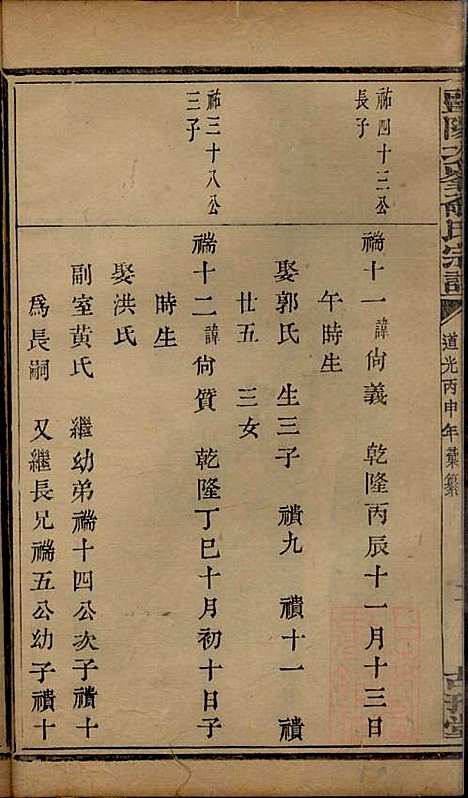 陽次峯俞氏宗譜
道光丙申年彙纂
祐四十三公
長子
褍十一 諱尚義 乾隆丙辰十一月十三日
午時生
娶郭氏 生三子 襀九 襀十一 襀
廿五 三女
祐三十八公
三子
褍十二 諱尚質 乾隆丁巳十月初十日子
時生
娶洪氏
副室黃氏 繼幼弟褍十四公次子襀十
爲長嗣 又繼長兄褍五公幼子襀十